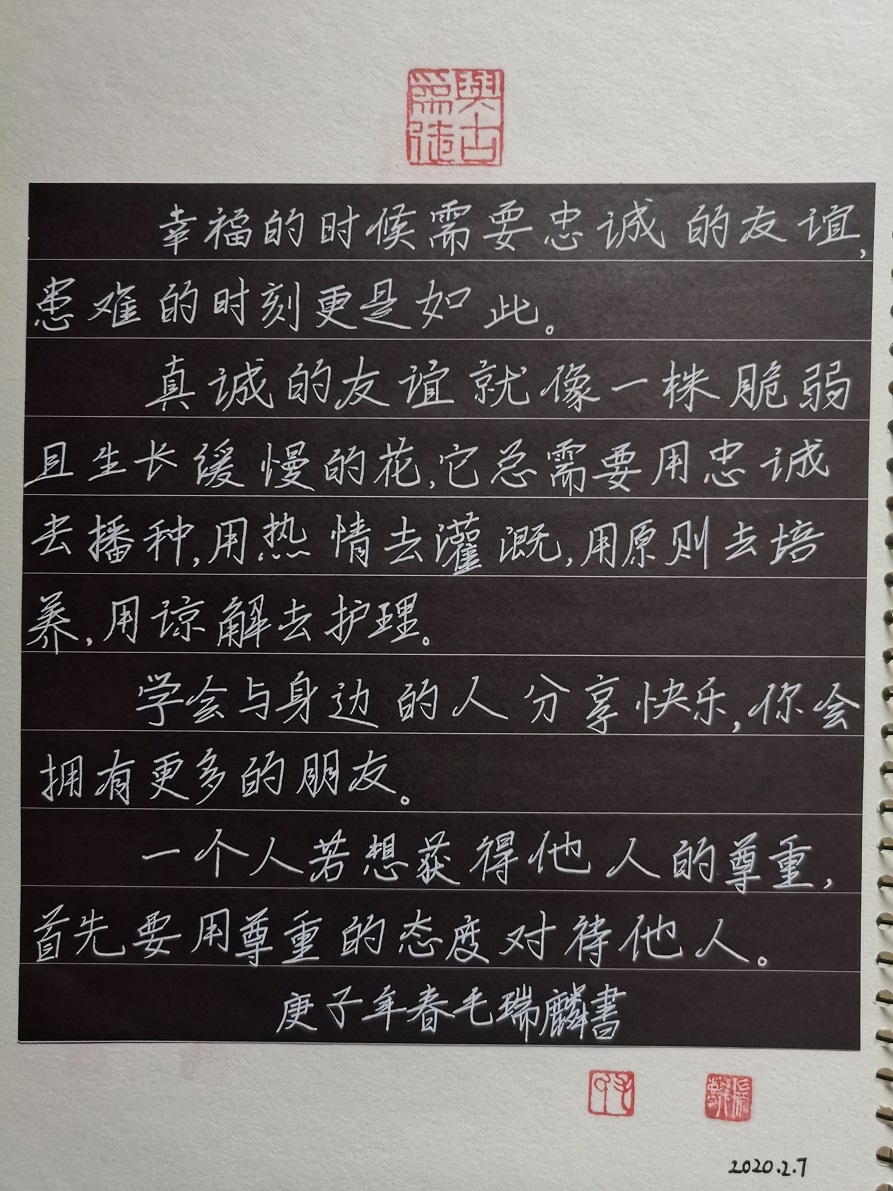 與古為徒
幸福的时候需要忠诚的友谊,
患难的时刻更是如此。
真诚的友谊就像一株脆弱
且生长缓慢的花,它总需要用忠诚
去播种,用热情去灌溉,用原则去培
养,用谅解去护理。
学会与身边的人分享快乐,你会
拥有更多的朋友。
一个人若想获得他人的尊重,
首先要用尊重的态度对待他人。
庚子年春毛瑞麟書
2020.2.7